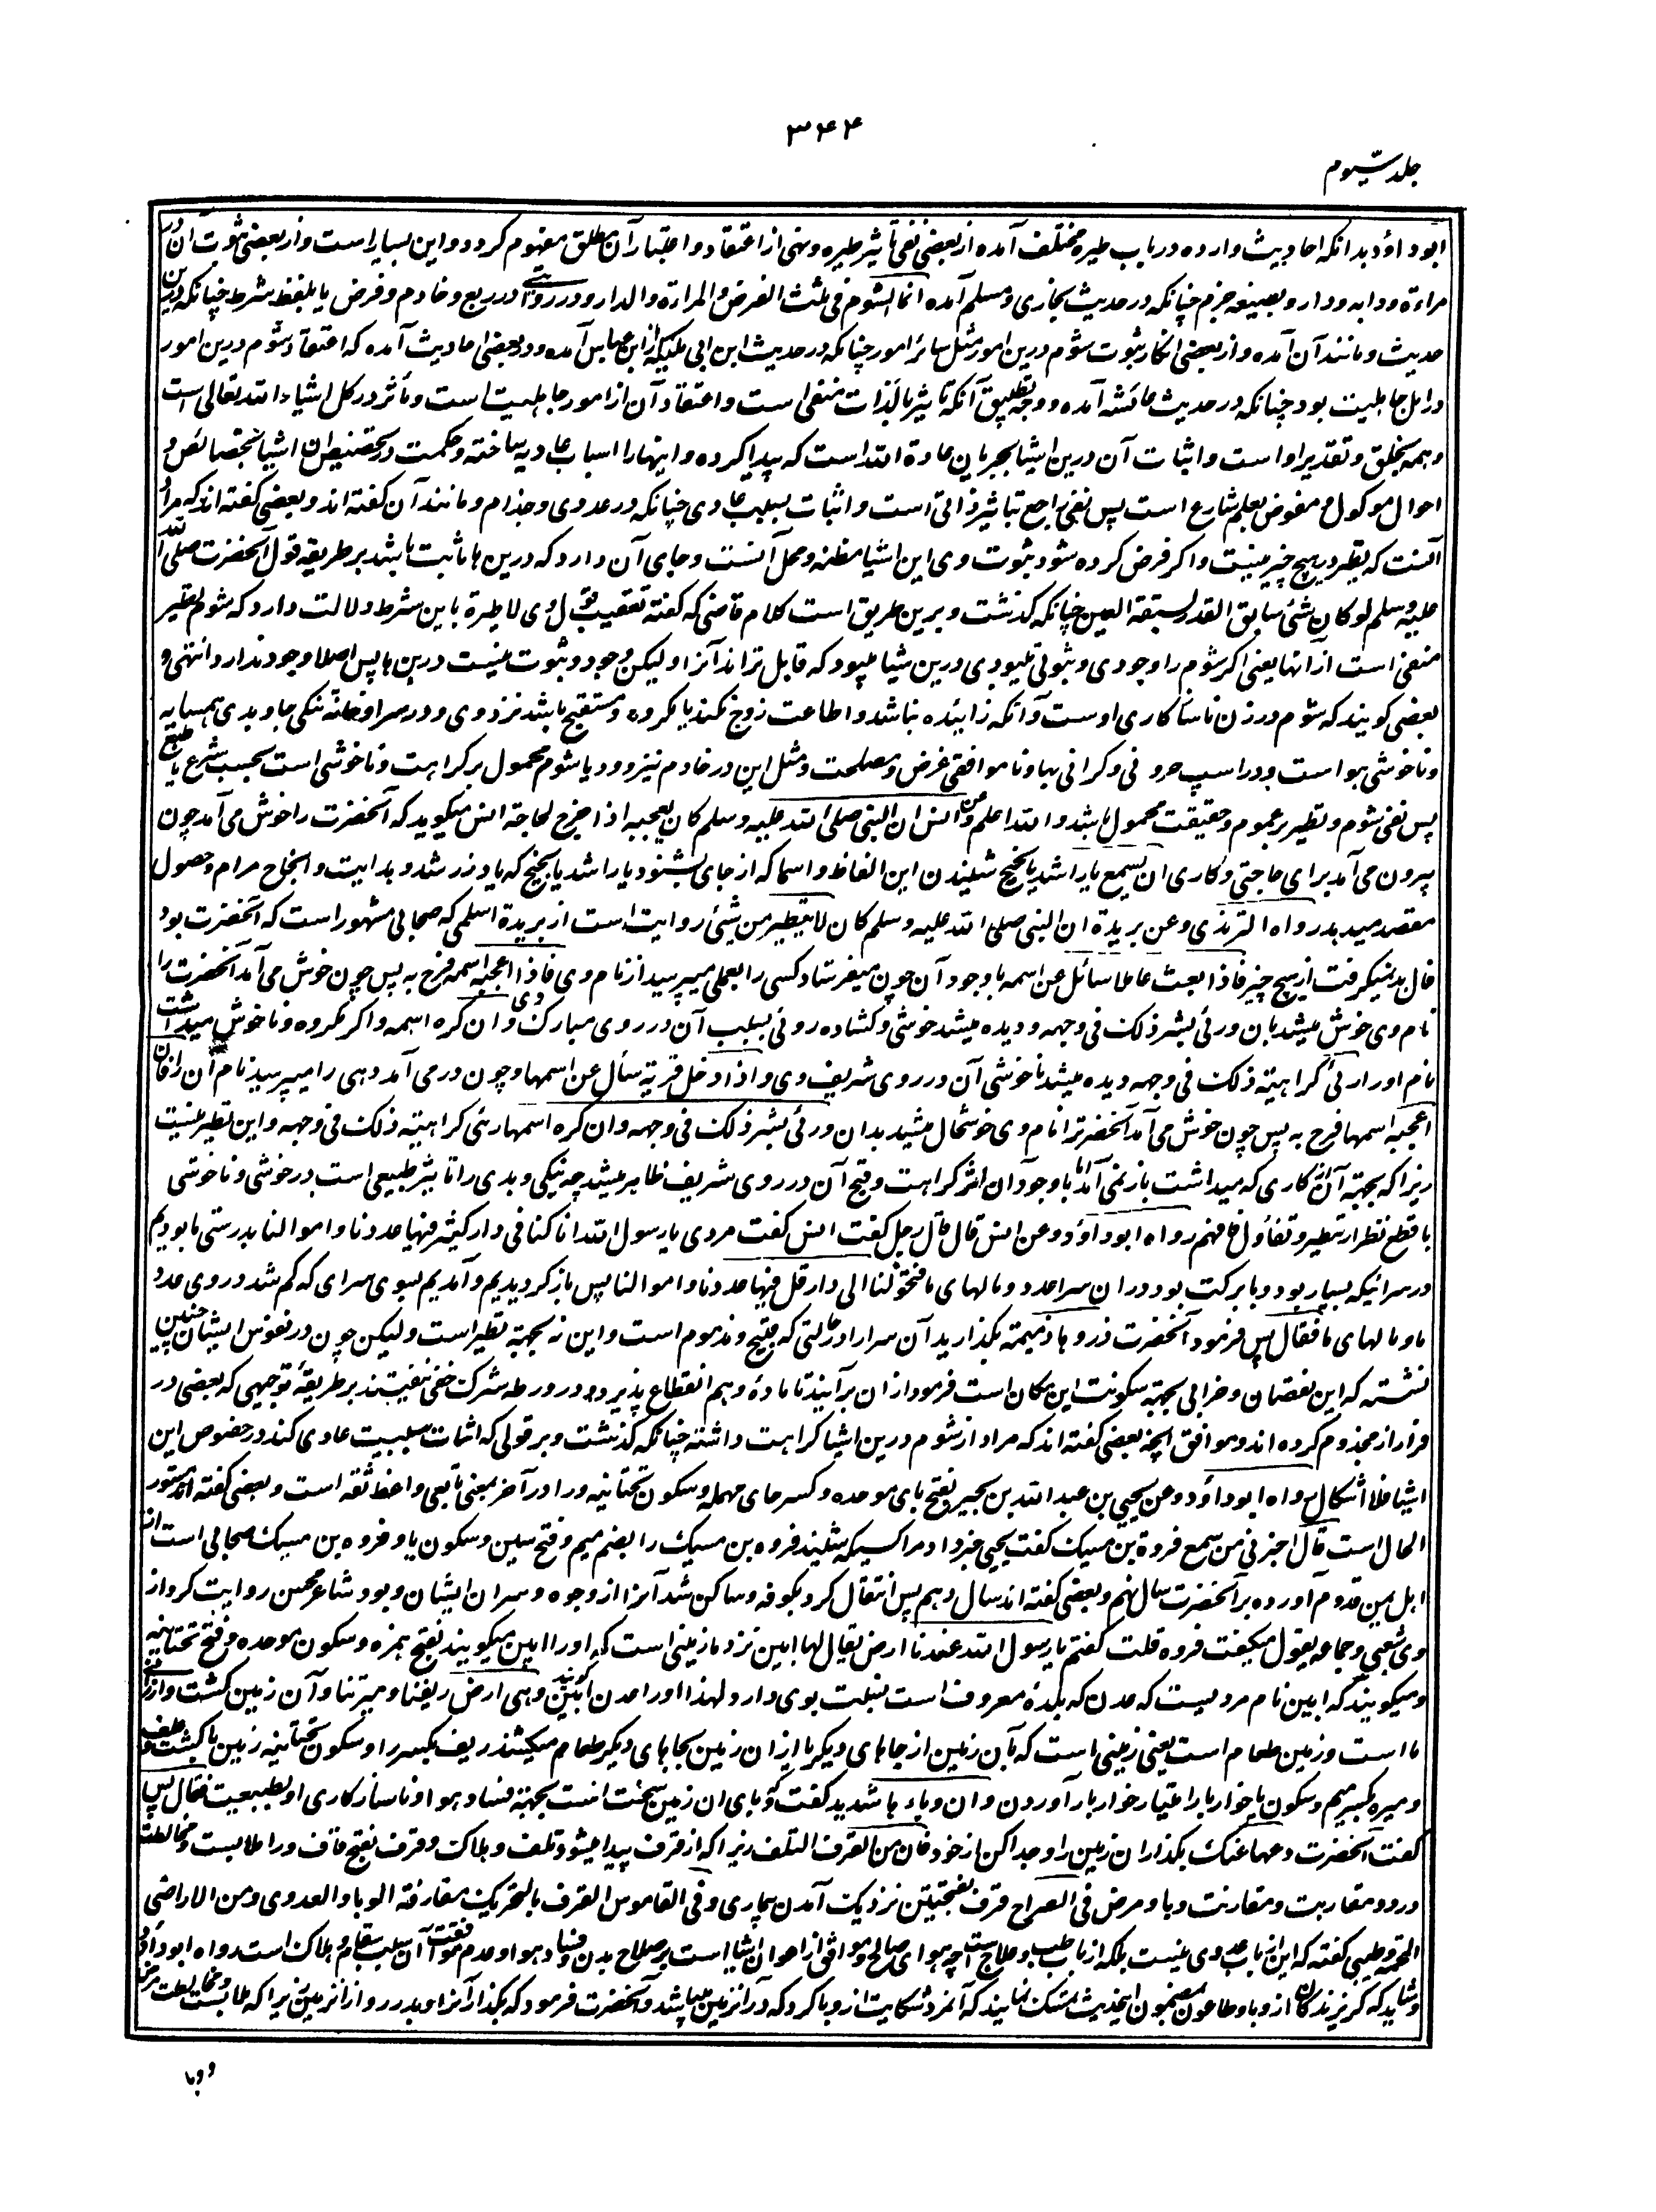 ۳۴۴
جلد سیّوم
ابوداؤد بدانکه احادیث وارده در باب طیره مختلف آمده از بعضی نفی تاثیر طیره و نهی از اعتقاد و اعتبار آن مطلق مفهوم گردد و این بسیار است و از بعضی ثبوت آن در
مراءة و دابه و دار و بصیغه جزم چنانکه در حدیث بخاری و مسلم آمده انما الشوم فی ثلث الفرس و المراءة و الدار و در روایتی در ربع و خادم و فرس یا بلفظ شرط چنانکه درین
حدیث و مانند آن آمده و از بعضی انکار ثبوت شوم درین امور مثل سائر امور چنانکه در حدیث ابن ابی ملیکه از ابن عباس آمده و در بعضی احادیث آمده که اعتقاد شوم درین امور
در اهل جاهلیت بود چنانکه در حدیث عائشه آمده و وجه تطبیق آنکه تاثیر بالذات منفی است و اعتقاد آن از امور جاهلیت است و مأثر در کل اشیاء الله تعالی است
و همه بخلق و تقدیر او است و اثبات آن درین اشیا بجریان عادة الله است که پیدا کرده و اینها را اسباب عادیه ساخته و حکمت در تخصیص این اشیا بخصائص و
احوال موکول و مفوض بعلم شارع است پس نفی راجع بتاثیر ذاتی است و اثبات بسبب عادی چنانکه در عدوی و جذام و مانند آن گفته اند و بعضی گفته اند که مراد
آنست که تطیر در هیچ چیز نیست و اگر فرض کرده شود ثبوت وی این اشیا مظنه و محل آنست و جای آن دارد که درین ها ثابت باشد بر طریقه قول آنحضرت صلی الله
علیه وسلم لو کان شئ سابق القدر لسبقته العین چنانکه گذشت و برین طریق است کلام قاضی که گفته تعقیب قول وی لا طیرة باین شرط دلالت دارد که شوم تطیر
منفی است از آنها یعنی اگر شوم را وجودی و ثبوتی میبودی درین اشیا میبود که قابل تر اند آنرا و لیکن وجود و ثبوت نیست درین ها پس اصلا وجود ندارد انتهی و
بعضی گویند که شوم در زن ناسازگاری اوست و آنکه زاینده نباشد و اطاعت زوج نکند یا مکروه و مستقبح باشد نزد وی و در سرا و خانه تنگی جا و بدی همسایه
و ناخوشی هوا است و در اسپ حرونی و گرانی بها و ناموافقی غرض و مصلحت و مثل این در خادم نیز و در یا شوم محمول بر کراهت و ناخوشی است بحسب شرع یا طبع
پس نفی شوم و تطیر بر عموم و حقیقت محمول باشد والله اعلم وعن انس ان النبی صلی الله علیه وسلم کان یعجبه اذا خرج لحاجة انس میگوید که آنحضرت را خوش می آمد چون
بیرون می آمد برای حاجتی و کاری ان یسمع یا راشد یا نجیح شنیدن این الفاظ و اسما که از جای بشنود یا راشد یا نجیح که یاد از رشد و هدایت و انجاح مرام و حصول
مقصد میدهد رواه الترمذی وعن بریدة ان النبی صلی الله علیه وسلم کان لا یتطیر من شئ روایت است از بریدة اسلمی که صحابی مشهور است که آنحضرت بود
فال بد نمیگرفت از هیچ چیز فاذا بعث عاملا سائل عن اسمه با وجود آن چون میفرستاد کسی را بعملی میپرسید از نام وی فاذا اعجبه اسمه فرح به پس چون خوش می آمد آنحضرت را
نام وی خوش میشد بان ورئی بشر ذلک فی وجهه و دیده میشد خوشی و کشاده روئی بسبب آن در روی مبارک وی وان کره اسمه و اگر مکروه و ناخوش میداشت
نام او را رئی کراهیته ذلک فی وجهه دیده میشد ناخوشی آن در روی شریف وی واذا دخل قریة سأل عن اسمها و چون در می آمد دهی را میپرسید نام آن را فان
اعجبه اسمها فرح به پس چون خوش می آمد آنحضرت را نام وی خوشحال میشد بدان ورئی بشر ذلک فی وجهه وان کره اسمها رئی کراهیته ذلک فی وجهه و این تطیر نیست
زیرا که بجهته آن از کاری که میداشت باز نمی آمد اما با وجود آن اثر کراهت و قبح آن در روی شریف ظاهر میشد چه نیکی و بدی را تاثیر طبیعی است در خوشی و ناخوشی
با قطع نظر از تطیر و تفاؤل فافهم رواه ابوداؤد وعن انس قال قال رجل گفت انس گفت مردی یا رسول الله انا کنا فی دار کثیر فیها عددنا و اموالنا بدرستی ما بودیم
در سرائیکه بسیار بود و با برکت بود در ان سرا عدد و مالهای ما فتحولنا الی دار قل فیها عددنا و اموالنا پس باز گردیدیم و آمدیم بسوی سرای که کم شد در وی عدد
ما و مالهای ما فقال پس فرمود آنحضرت ذروها ذمیمته بگذارید آن سرا را در حالتی که قبیح و مذموم است و این نه بجهته تطیر است و لیکن چون در نفوس ایشان چنین
نشسته که این نقصان و خرابی بجهته سکونت این مکان است فرمود ازان بر آیند تا مادهٔ وهم انقطاع پذیرد و در ورطه شرک خفی نیفتند بر طریقهٔ توجیهی که بعضی در
فرار از مجذوم کرده اند و موافق آنچه بعضی گفته اند که مراد از شوم درین اشیا کراهت داشته چنانکه گذشت و بر قولی که اثبات سببیت عادی کند در خصوص این
اشیا فلا اشکال رواه ابوداؤد وعن یحیی بن عبدالله بن بحیر بفتح بای موحده و کسر حای مهمله و سکون تحتانیه و را در آخر بمعنی تابعی واعظ ثقه است و بعضی گفته اند مستور
الحال است قال اخبرنی من سمع فروة بن مسیک گفت یحیی خبر داد مرا کسیکه شنید فروه بن مسیک را بضم میم و فتح سین و سکون یا و فروه بن مسیک صحابی است از
اهل یمن قدوم آورده بر آنحضرت سال نهم و بعضی گفته اند سال دهم پس انتقال کرد بکوفه و ساکن شد آنرا از وجوه و سران ایشان و بود شاعر محسن روایت کرد از
وی شعبی و جماعه یقول میگفت فروه قلت گفتم یا رسول الله عندنا ارض یقال لها ابین نزد ما زمینی است که او را ابین میگویند بفتح همزه و سکون موحده و فتح تحتانیه
و میگویند که ابین نام مردیست که عدن که بلدهٔ معروف است بنسبت بوی دارد و لهذا او را عدن ابین گویند وهی ارض ریفنا ومیرتنا و آن زمین کشت و ارزانی
ما است و زمین طعام است یعنی زمینی است که بآن زمین از جاهای دیگر یا ازان زمین بجاهای دیگر طعام میکشند ریف بکسر را و سکون تحتانیه زمین با کشت و علف
و میره بکسر میم و سکون یا خواربار را امتیار خواربار آوردن وان وباء ها شدید گفت و وبای ان زمین سخت است بجهته فساد هوا و ناسازگاری او بطبیعت فقال پس
گفت آنحضرت دعها عنک بگذار ان زمین را و جدا کن از خود فان من القرف التلف زیرا که از قرف پیدا میشود تلف و هلاک و قرف بفتح قاف و را ملابست و مخالطت
درد و مقاربت و مقارنت وبا و مرض فی الصراح قرف بفتحتین نزدیک آمدن بیماری و فی القاموس القرف بالتحریک مقارفة الوبا و العدوی ومن الاراضی
المحمة و طیبی گفته که این از باب عدوی نیست بلکه از باب طب و علاج است چه هوای صالح و موافق از اعوان اشیا است بر صلاح بدن و فساد هوا و عدم موافقت آن سبب سقام و هلاک است رواه ابوداؤد
و شاید که گریزندگان از وبا و طاعون بمضمون این حدیث متمسک نمایند که آنمرد شکایت از وبا کرد که در آنزمین میباشد و آنحضرت فرمود که بگذار آنرا و بدر رو از انزمین زیرا که ملابست و مخالطت مرض
و وبا